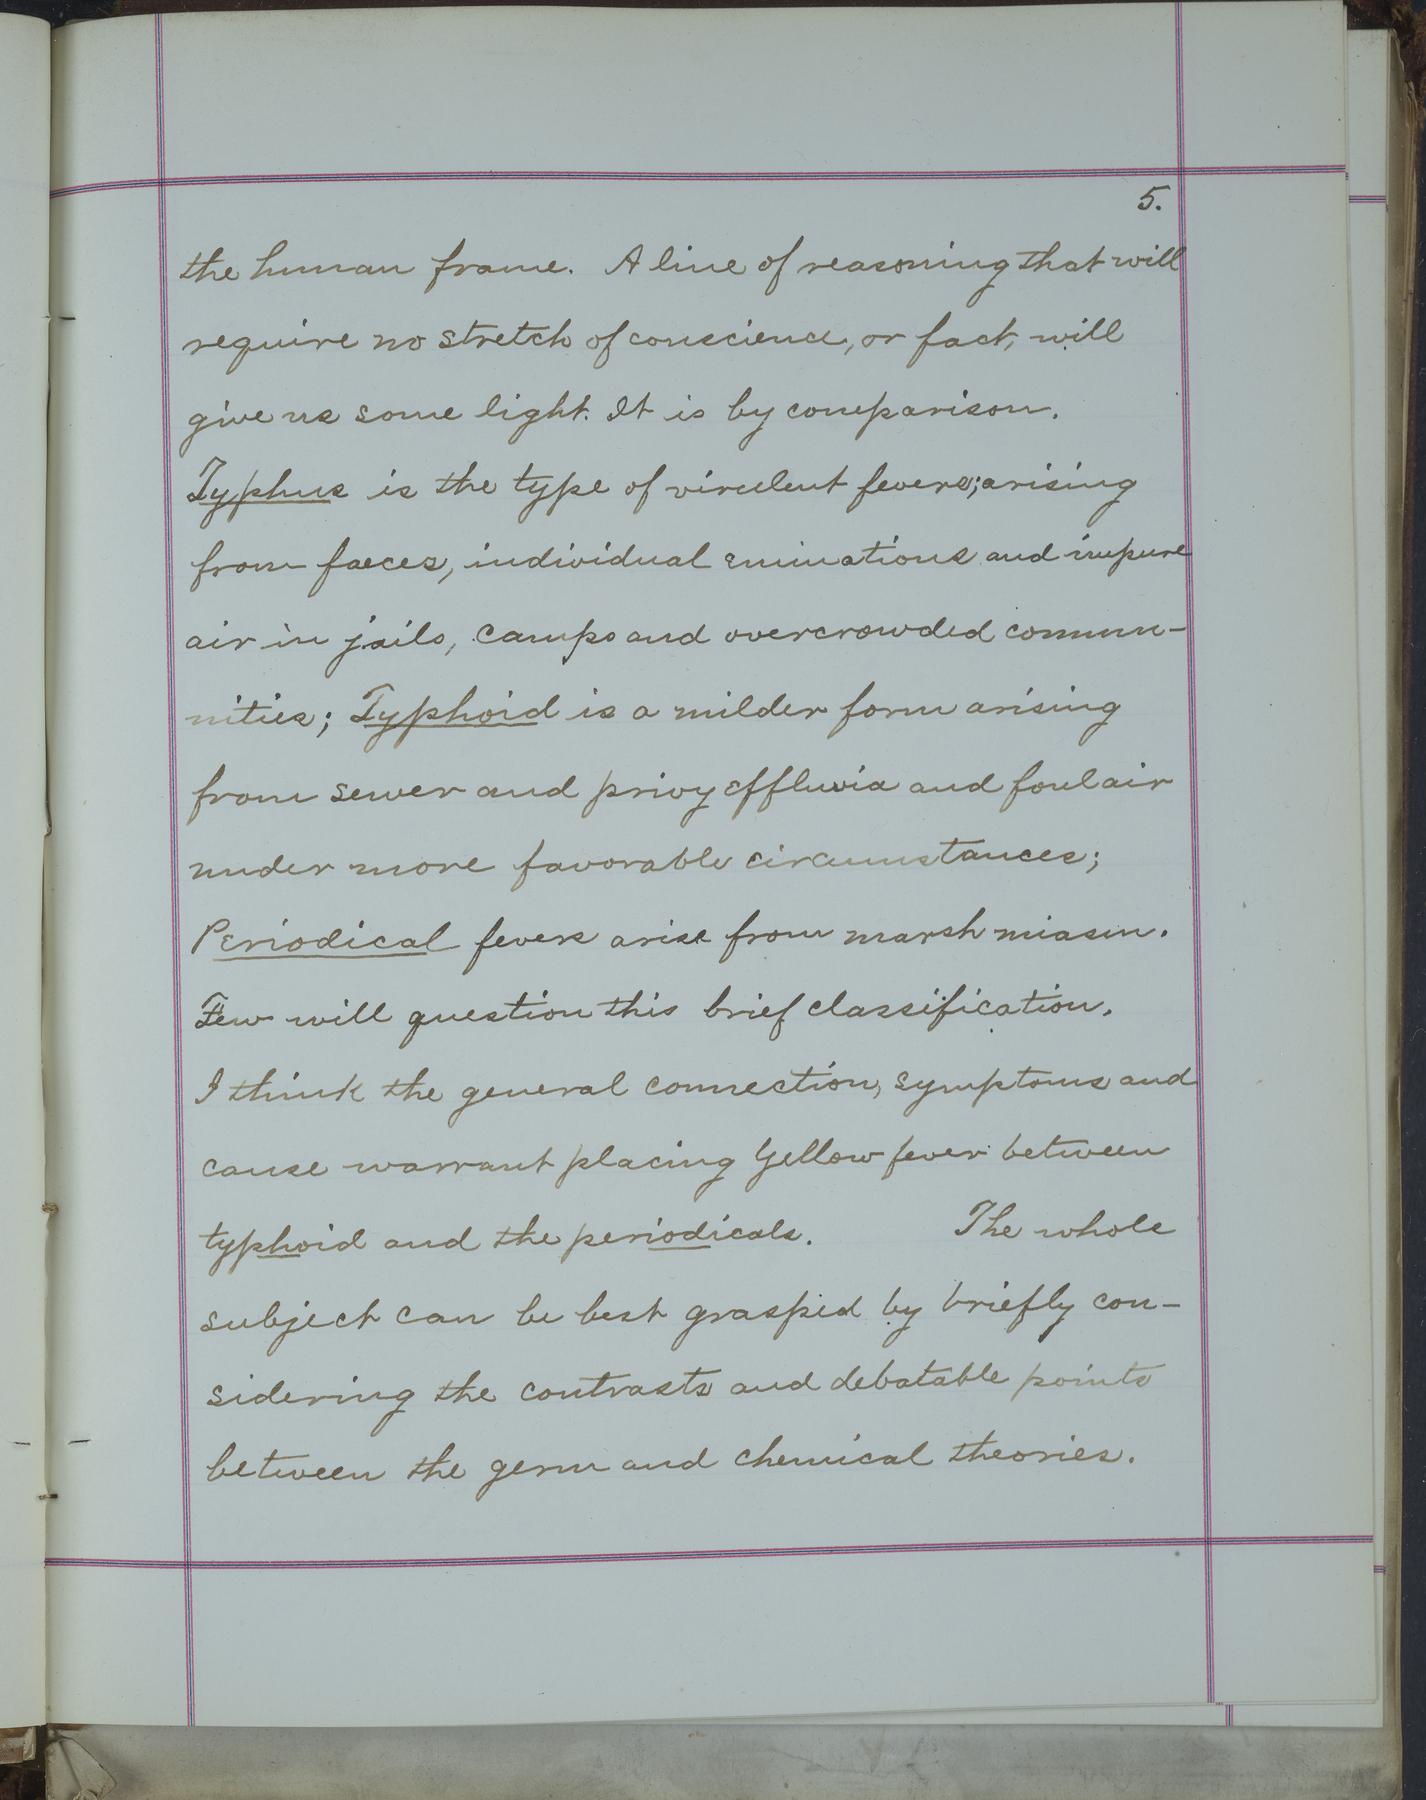 5.
the human frame. A line of reasoning that will
require no stretch of conscience, or fact, will
give us some light. It is by comparison.
Typhus is the type of virulent fevers; arising
from faeces, individual eminations and impure
air in jails, camps and overcrowded commu-
nities; Typhoid is a milder form arising
from sewer and privy effluvia and foul air
under more favorable circumstances;
Periodical fevers arise from marsh miasm.
Few will question this brief classification.
I think the general connection, symptoms and
cause warrant placing Yellow fever between
typhoid and the periodicals. The whole
subject can be best grasped by briefly con-
sidering the contrasts and debatable points
between the germ and chemical theories.